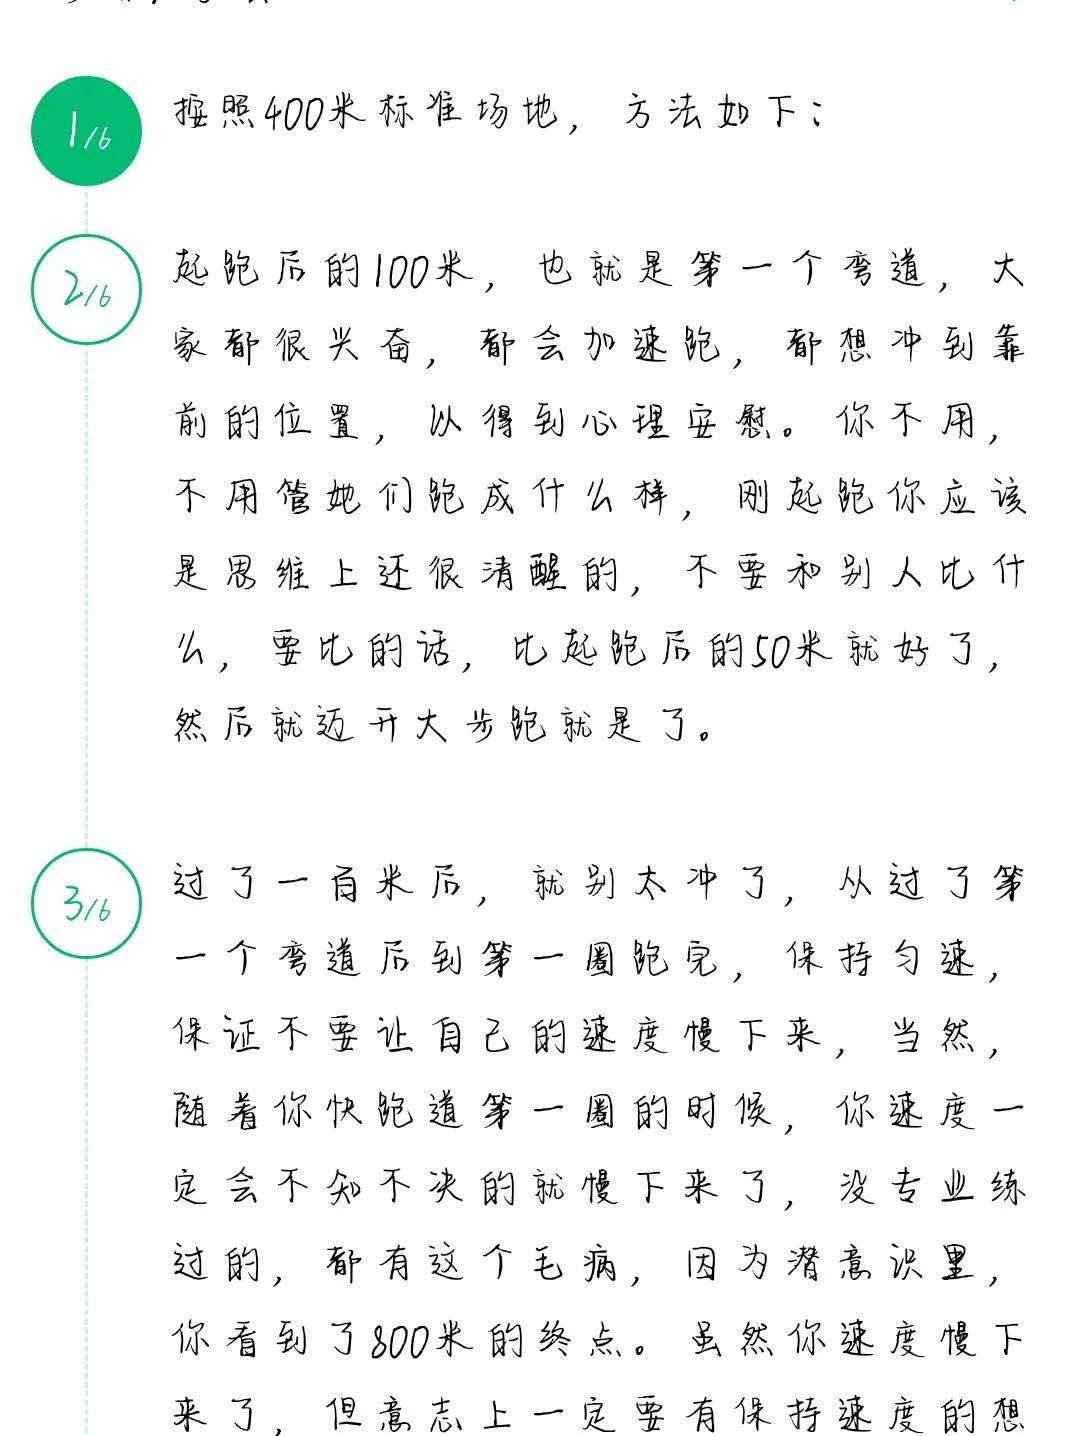 1/6
按照400米标准场地，方法如下：
2/6
起跑后的100米，也就是第一个弯道，大
家都很兴奋，都会加速跑，都想冲到靠
前的位置，以得到心理安慰。你不用，
不用管她们跑成什么样，刚起跑你应该
是思维上还很清醒的，不要和别人比什
么，要比的话，比起跑后的50米就好了，
然后就迈开大步跑就是了。
3/6
过了一百米后，就别太冲了，从过了第
一个弯道后到第一圈跑完，保持匀速，
保证不要让自己的速度慢下来，当然，
随着你快跑道第一圈的时候，你速度一
定会不知不决的就慢下来了，没专业练
过的，都有这个毛病，因为潜意识里，
你看到了800米的终点。虽然你速度慢下
来了，但意志上一定要有保持速度的想